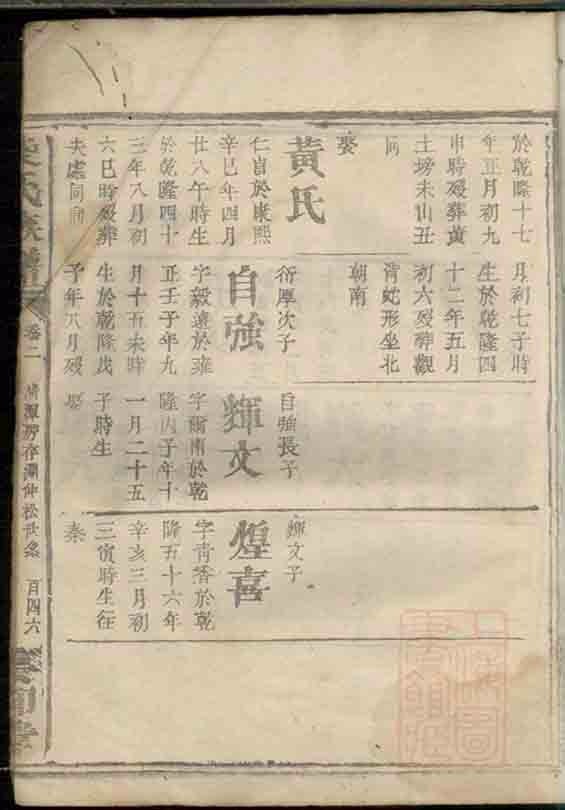 於乾隆十七
年正月初九
申時歿葬黃
土塝未山丑
向
娶
黃氏
仁旨於康熙
辛巳年四月
廿八午時生
於乾隆四十
三年八月初
六巳時歿葬
夫處同向
月初七子時
生於乾隆四
十二年五月
初六歿葬觀
背蛇形坐北
朝南
衍厚次子
自強
字毅遠於雍
正壬子年九
月十五未時
生於乾隆戊
子年八月歿
娶
自強長子
輝文
字爾南於乾
隆丙子年十
一月二十五
子時生
輝文子
煌喜
字青香於乾
隆五十六年
辛亥三月初
三寅時生往
秦
氏族譜
卷二
房存淵仲松世系
百四六